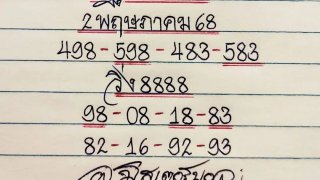 2 พฤษภาคม 68
498-598-483-583
วิ่ง 8888
98-08-18-83
82-16-92-93